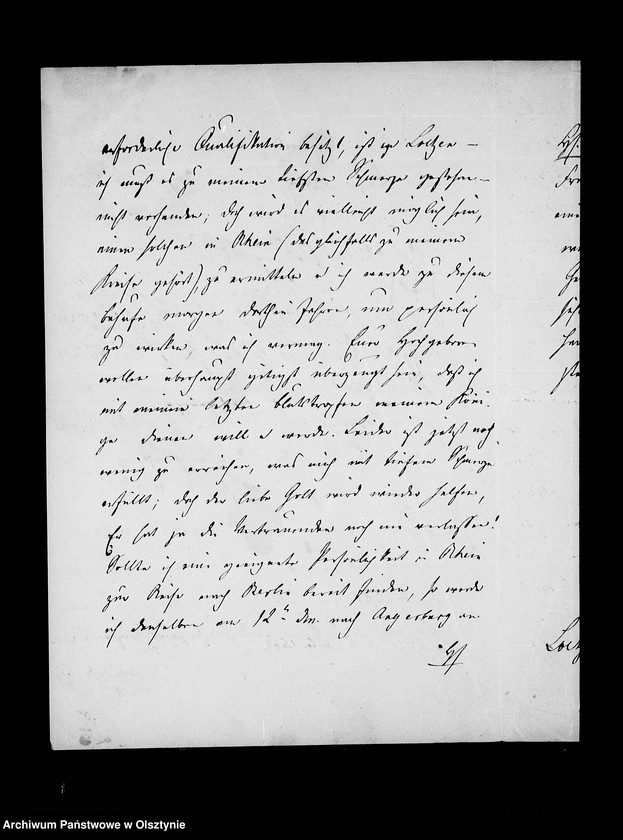 erforderliche Qualifikation besitzt, ist in Loetzen –
ich muß es zu meinem tiefsten Schmerze gestehen –
nicht vorhanden; doch wird es vielleicht möglich sein,
einen solchen in Rhein (desgleichfalls zu meinem
Kreise gehört), zu ermitteln u ich werde zu diesem
Behufe morgen dorthin fahren, um persönlich
zu wirken, was ich vermag. Euer Hochgeboren
wollen überhaupt gütigst überzeugt sein, daß ich
mit meinem letzten Blutstropfen meinem Köni-
ge dienen will u werde. Leider ist jetzt noch
wenig zu erreichen, was mich mit tiefem Schmerze
erfüllt; doch der liebe Gott wird wieder helfen,
Er hat ja die Vertrauenden noch nie verlassen!
Sollte ich eine geeignete Persönlichkeit in Rhein
zur Reise nach Berlin bereit finden, so werde
ich denselben am 12ten nach Angerburg an
Loetz
Archiwum Państwowe w Olsztynie